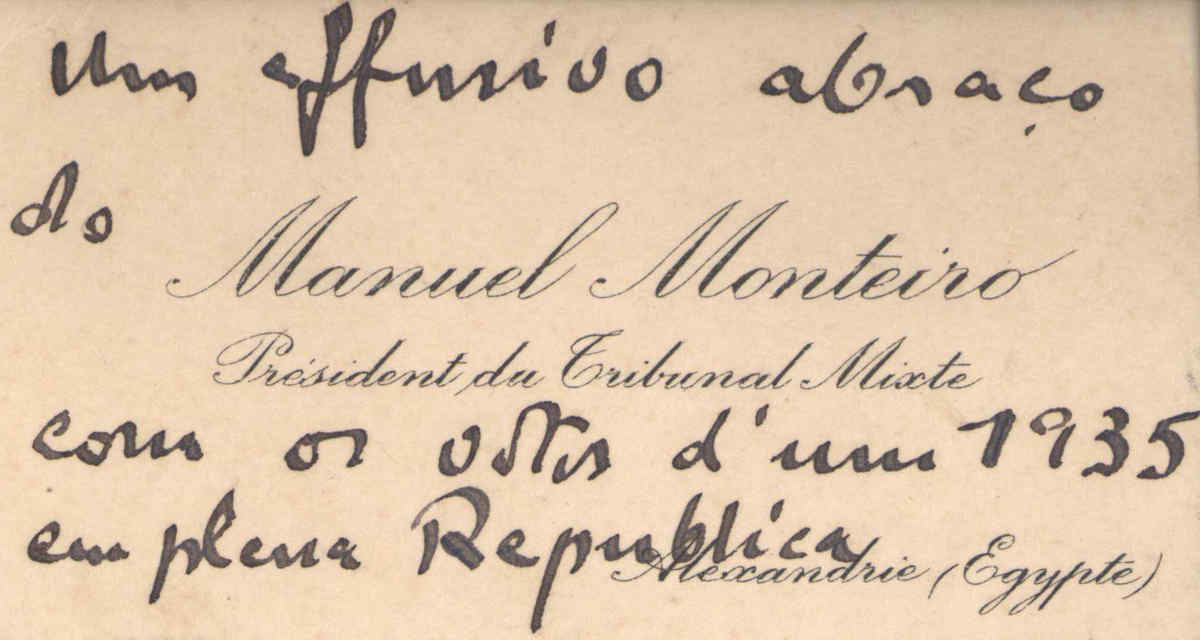 Um effusivo abraço
do
Manuel Monteiro
Président du Tribunal Mixte
com os votos d'um 1935
em plena Republica
Alexandrie (Egypte)